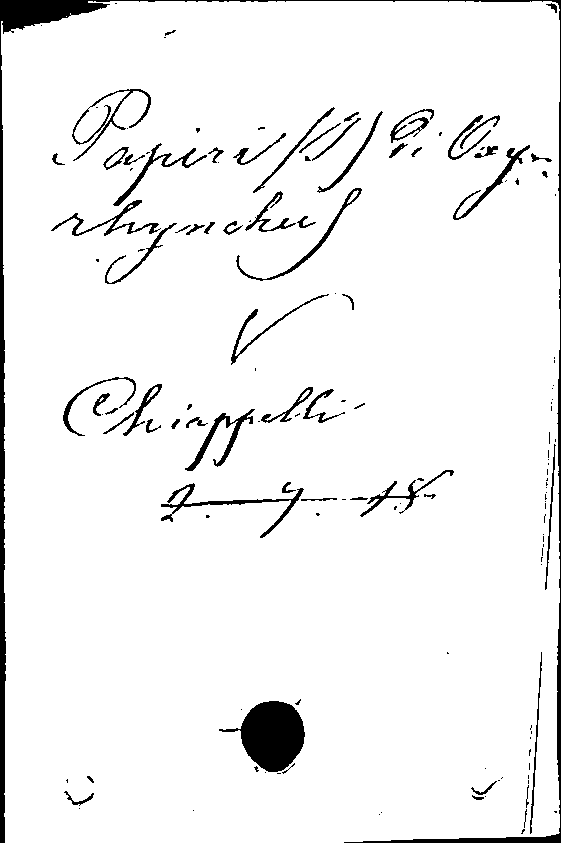 Papiri (I) di Oxy-
rhynchus
V
Chiappelli
2 7 18